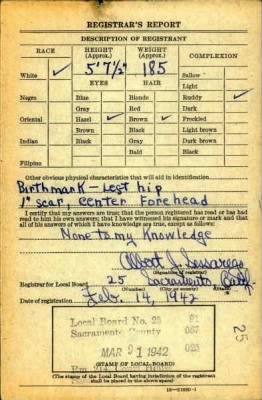 REGISTRAR'S REPORT
DESCRIPTION OF REGISTRANT
RACE HEIGHT (Approx.) WEIGHT (Approx.) COMPLEXION
5' 7½" 185
White ✓ Sallow
EYES HAIR Light
Negro Blue Blonde Ruddy ✓
Gray Red Dark
Oriental Hazel ✓ Brown ✓ Freckled
Brown Black Light brown
Indian Black Gray Dark brown
Bald Black
Filipino
Other obvious physical characteristics that will aid in identification
Birthmark - Left hip
1" scar, center Forehead
I certify that my answers are true; that the person registered has read or has had
read to him his own answers; that I have witnessed his signature or mark and that
all of his answers of which I have knowledge are true, except as follows:
None to my knowledge
Albert J.
(Signature of registrar)
Registrar for Local Board 25 Sacramento Calif.
(Number) (City or county) (State)
Date of registration Feb. 14, 1942
Local Board No. 25 91
Sacramento County 067
MAR 21 1942 025
25
(STAMP OF LOCAL BOARD)
(The stamp of the Local Board having jurisdiction of the registrant
shall be placed in the above space)